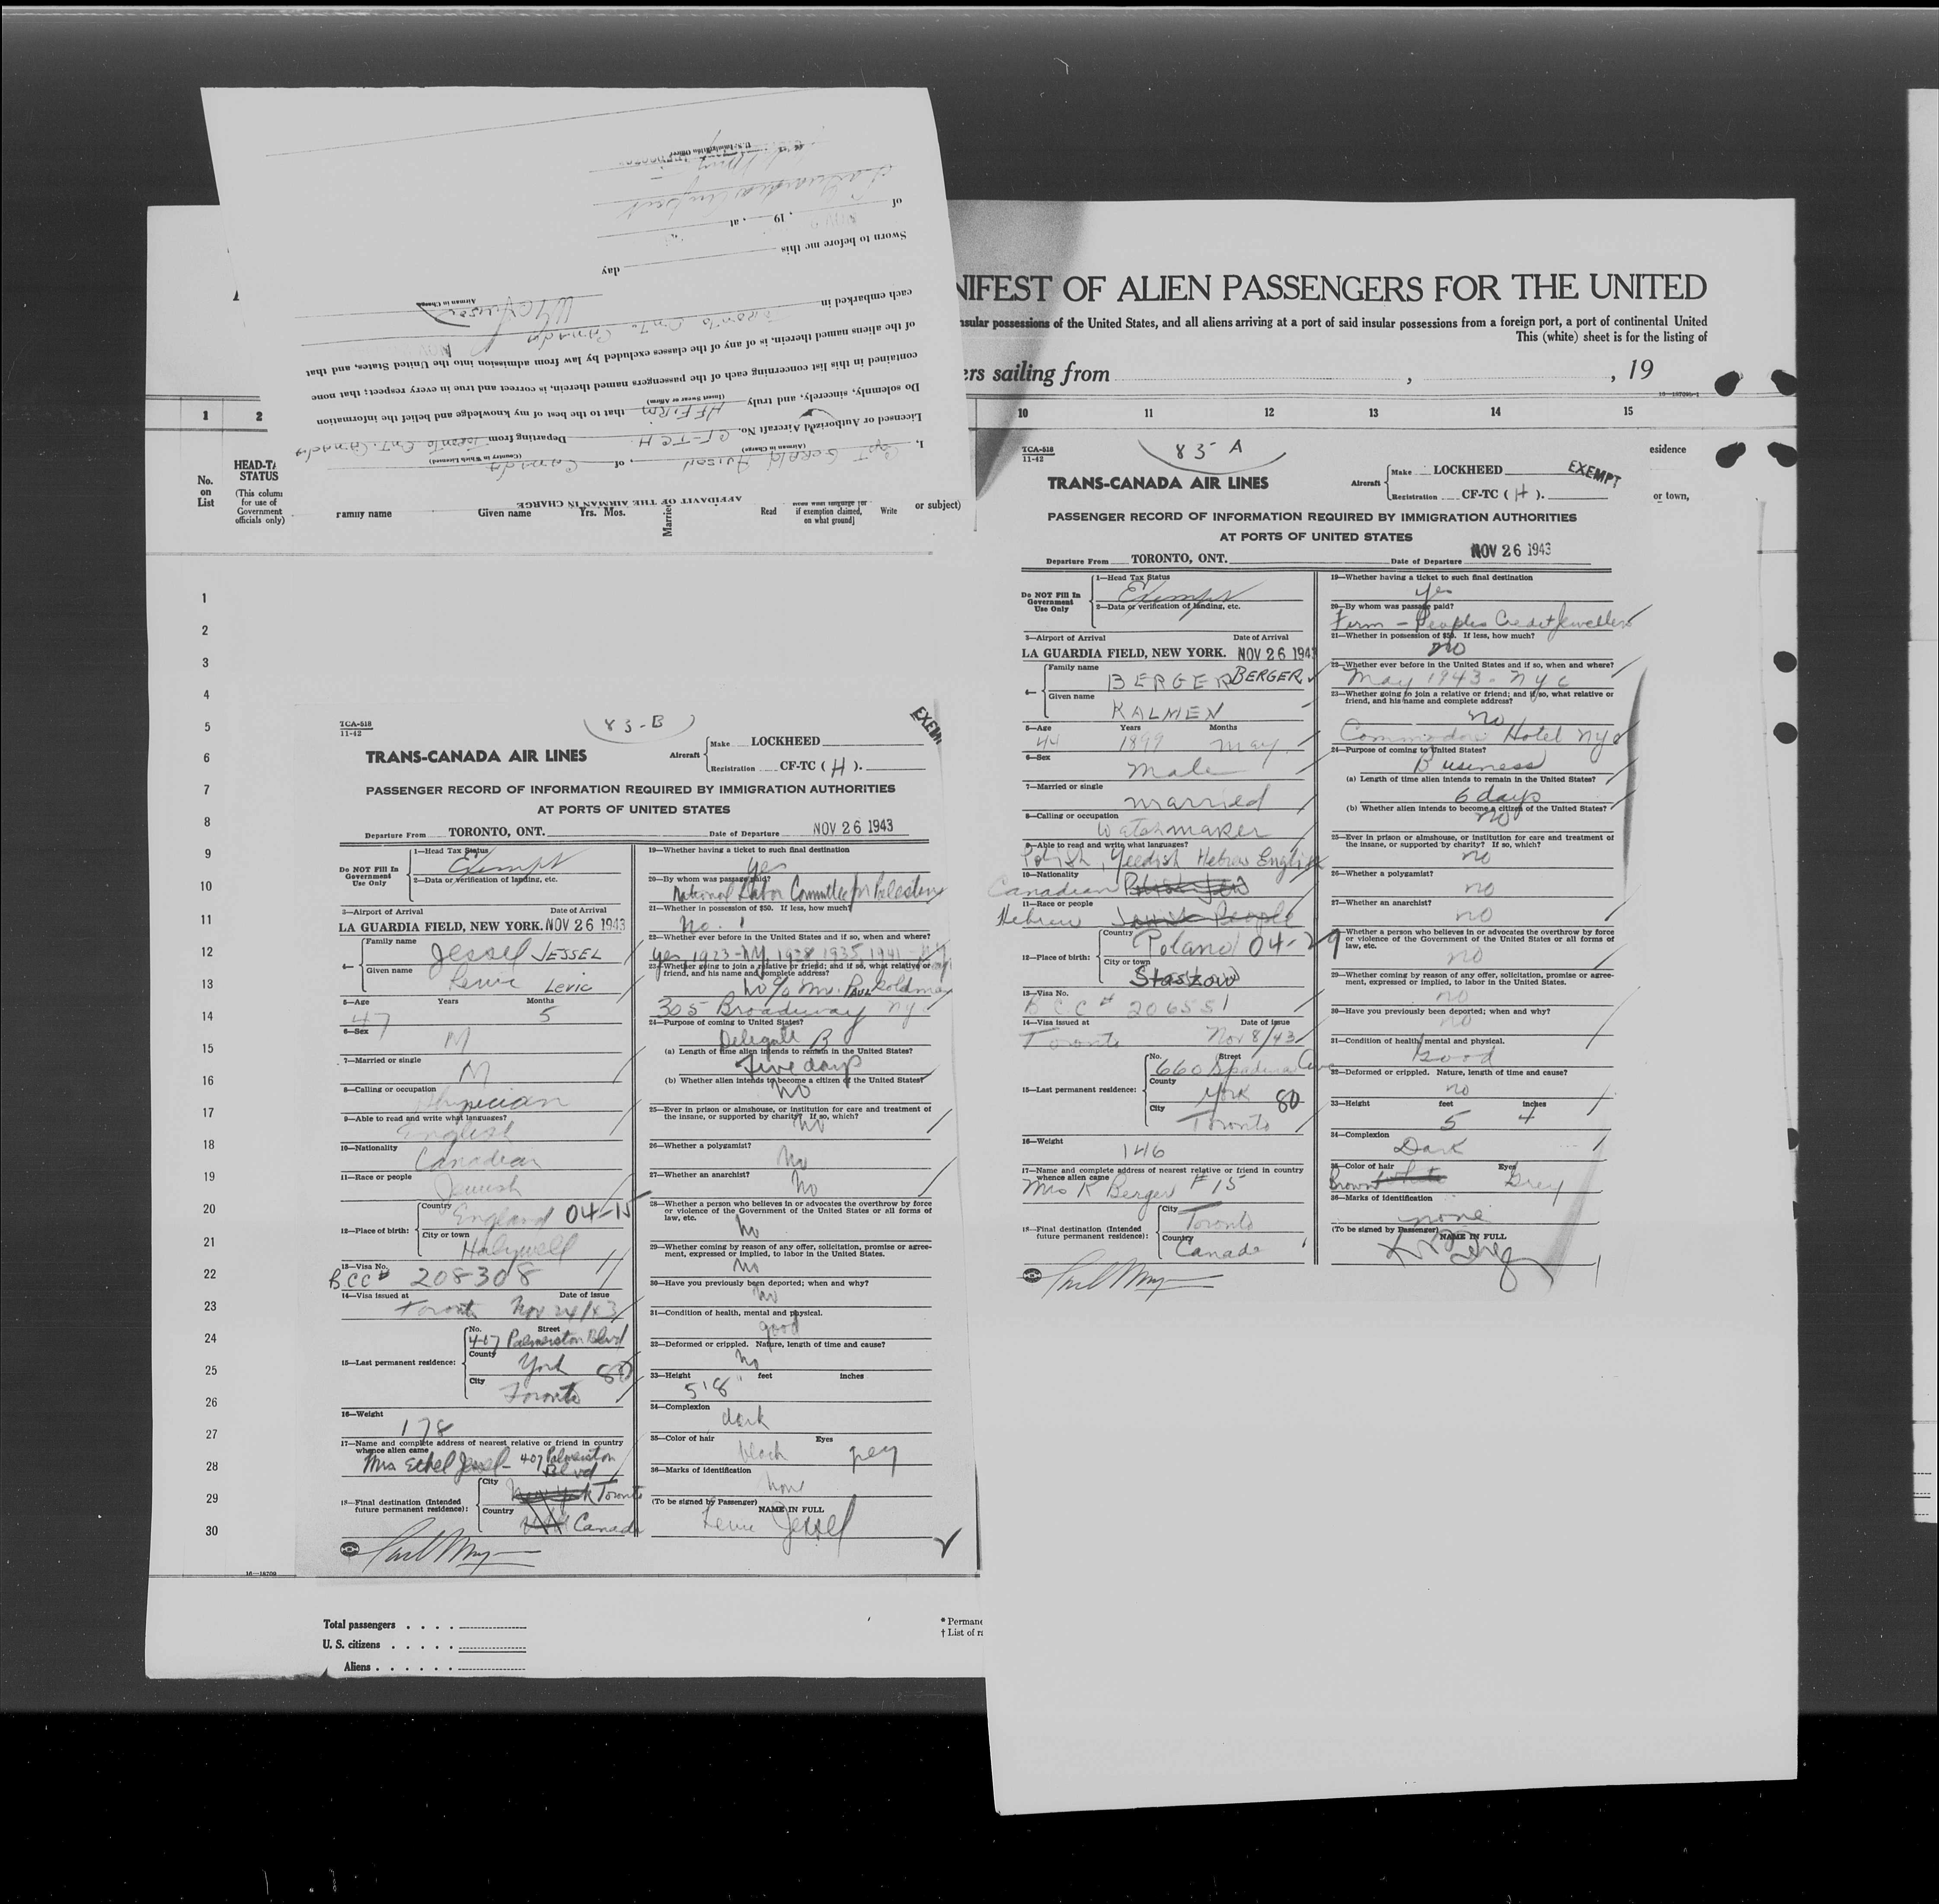 NIFEST OF ALIEN PASSENGERS FOR THE UNITED
insular possessions of the United States, and all aliens arriving at a port of said insular possessions from a foreign port, a port of continental United
This (white) sheet is for the listing of
ers sailing from , , 19
1 2
No. on List
HEAD-TA
STATUS
(This column
for use of
Government
officials only)
Family name Given name Yrs. Mos. Married Read if exemption claimed, on what ground] Write or subject)
10 11 12 13 14 15
esidence
or town,
AFFIDAVIT OF THE AIRMAN IN CHARGE
I, Capt Gerald , of Canada
(Airman in Charge) (Country in Which Licensed)
Licensed or Authorized Aircraft No. CF-TCH. Departing from Toronto Ont. Canada
Do solemnly, sincerely, and truly AFFIRM that to the best of my knowledge and belief the information
(Insert Swear or Affirm)
contained in this list concerning each of the passengers named therein, is correct and true in every respect; that none
of the aliens named therein, is of any of the classes excluded by law from admission into the United States, and that
each embarked in Toronto Ont. Canada
Airman in Charge
Sworn to before me this day
of , 19 , at
U.S. Immigration Officer
1
2
3
4
5
6
7
8
9
10
11
12
13
14
15
16
17
18
19
20
21
22
23
24
25
26
27
28
29
30
TCA-518
11-42
83-B
EXEM
TRANS-CANADA AIR LINES
Aircraft Make LOCKHEED
Registration CF-TC ( H ).
PASSENGER RECORD OF INFORMATION REQUIRED BY IMMIGRATION AUTHORITIES
AT PORTS OF UNITED STATES
Departure From TORONTO, ONT. Date of Departure NOV 26 1943
Do NOT Fill In
Government
Use Only
1—Head Tax Status
Exempt
2—Data or verification of landing, etc.
3—Airport of Arrival Date of Arrival
LA GUARDIA FIELD, NEW YORK. NOV 26 1943
4— Family name Jessel JESSEL
Given name Levic
5—Age Years Months
47 5
6—Sex
M
7—Married or single
M
8—Calling or occupation
Physician
9—Able to read and write what languages?
English
10—Nationality
Canadian
11—Race or people
Jewish
12—Place of birth: Country England 04-15
City or town
Holywell
13—Visa No.
BCC# 208308
14—Visa issued at Date of Issue
Toronto Nov 24/43
15—Last permanent residence: No. Street
407 Palmerston Blvd
County
York 80
City
Toronto
16—Weight
178
17—Name and complete address of nearest relative or friend in country
whence alien came
Mrs Ethel Jessel - 407 Palmerston Blvd
18—Final destination (Intended
future permanent residence): City New York Toronto
Country
Canada
19—Whether having a ticket to such final destination
Yes
20—By whom was passage paid?
National Labor Committee for Palestine
21—Whether in possession of $50. If less, how much?
No.
22—Whether ever before in the United States and if so, when and where?
yes, 1923-NY, 1928, 1935, 1941
23—Whether going to join a relative or friend; and if so, what relative or
friend, and his name and complete address?
no c/o Mr. Paul Goldman
305 Broadway NY
24—Purpose of coming to United States?
Delegate B
(a) Length of time alien intends to remain in the United States?
Five days
(b) Whether alien intends to become a citizen of the United States?
No
25—Ever in prison or almshouse, or institution for care and treatment of
the insane, or supported by charity? If so, which?
No
26—Whether a polygamist?
No
27—Whether an anarchist?
No
28—Whether a person who believes in or advocates the overthrow by force
or violence of the Government of the United States or all forms of
law, etc.
No
29—Whether coming by reason of any offer, solicitation, promise or agree-
ment, expressed or implied, to labor in the United States.
No
30—Have you previously been deported; when and why?
No
31—Condition of health, mental and physical.
good
32—Deformed or crippled. Nature, length of time and cause?
No
33—Height feet inches
5'8"
34—Complexion
dark
35—Color of hair Eyes
black grey
36—Marks of identification
None
(To be signed by Passenger)
NAME IN FULL
Jessel
16—18709
Total passengers
U. S. citizens
Aliens
* Permane
† List of ra
TCA-518
11-42
83 A
EXEMPT
TRANS-CANADA AIR LINES
Aircraft Make LOCKHEED
Registration CF-TC ( H ).
PASSENGER RECORD OF INFORMATION REQUIRED BY IMMIGRATION AUTHORITIES
AT PORTS OF UNITED STATES
Departure From TORONTO, ONT. Date of Departure NOV 26 1943
Do NOT Fill In
Government
Use Only
1—Head Tax Status
Exempt
2—Data or verification of landing, etc.
3—Airport of Arrival Date of Arrival
LA GUARDIA FIELD, NEW YORK. NOV 26 1943
4— Family name
BERGER BERGER
Given name
KALMEN
5—Age Years Months
44 1899 May
6—Sex
male
7—Married or single
married
8—Calling or occupation
Watchmaker
9—Able to read and write what languages?
Polish, Yeedish Hebrew English
10—Nationality
Canadian
11—Race or people
Hebrew Jewish People
12—Place of birth: Country
Poland 04-29
City or town
Staszow
13—Visa No.
BCC # 206551
14—Visa issued at Date of Issue
Toronto Nov 8/43
15—Last permanent residence: No. Street
660 Spadina Ave
County
York 80
City
Toronto
16—Weight
146
17—Name and complete address of nearest relative or friend in country
whence alien came
Mrs K Berger #15
18—Final destination (Intended
future permanent residence): City
Toronto
Country
Canada
19—Whether having a ticket to such final destination
yes
20—By whom was passage paid?
Firm - Peoples Credit Jewellers
21—Whether in possession of $50. If less, how much?
no
22—Whether ever before in the United States and if so, when and where?
May 1943 - NYC
23—Whether going to join a relative or friend; and if so, what relative or
friend, and his name and complete address?
no
Commodore Hotel NYC
24—Purpose of coming to United States?
Business
(a) Length of time alien intends to remain in the United States?
6 days
(b) Whether alien intends to become a citizen of the United States?
no
25—Ever in prison or almshouse, or institution for care and treatment of
the insane, or supported by charity? If so, which?
no
26—Whether a polygamist?
no
27—Whether an anarchist?
no
28—Whether a person who believes in or advocates the overthrow by force
or violence of the Government of the United States or all forms of
law, etc.
no
29—Whether coming by reason of any offer, solicitation, promise or agree-
ment, expressed or implied, to labor in the United States.
no
30—Have you previously been deported; when and why?
no
31—Condition of health, mental and physical.
Good
32—Deformed or crippled. Nature, length of time and cause?
no
33—Height feet inches
5 4
34—Complexion
Dark
35—Color of hair Eyes
Brown White Grey
36—Marks of identification
none
(To be signed by Passenger)
NAME IN FULL